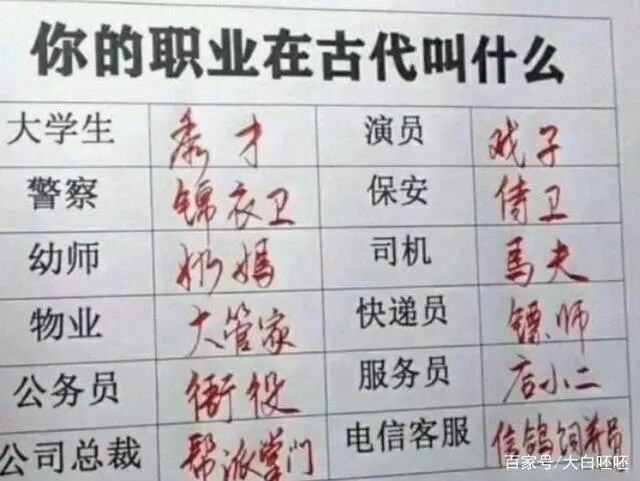 你的职业在古代叫什么
大学生 秀才 演员 戏子
警察 锦衣卫 保安 侍卫
幼师 奶妈 司机 馬夫
物业 大管家 快递员 镖师
公务员 衙役 服务员 店小二
公司总裁 帮派掌门 电信客服 信鸽饲养员
百家号/大白呸呸